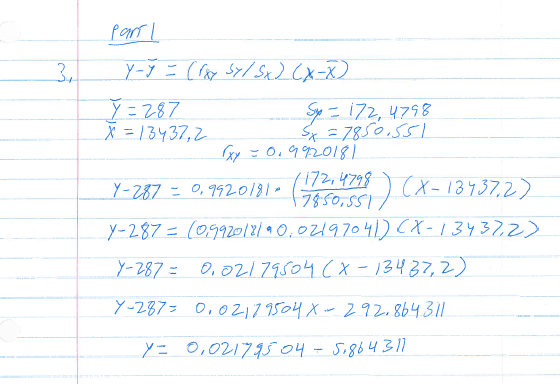 Part 1
3. y-ȳ = (rxy sy/sx) (x-x̄)
ȳ = 287 sy = 172,4798
x̄ = 13437,2 sx = 7850,551
rxy = 0.9920181
y-287 = 0,9920181 • (172,4798/7850,551) (x-13437,2)
y-287 = (0,9920181 • 0,02197041) (x-13437,2)
y-287 = 0,02179504 (x-13437,2)
y-287 = 0,02179504x - 292.864311
y = 0,02179504 - 5,864311